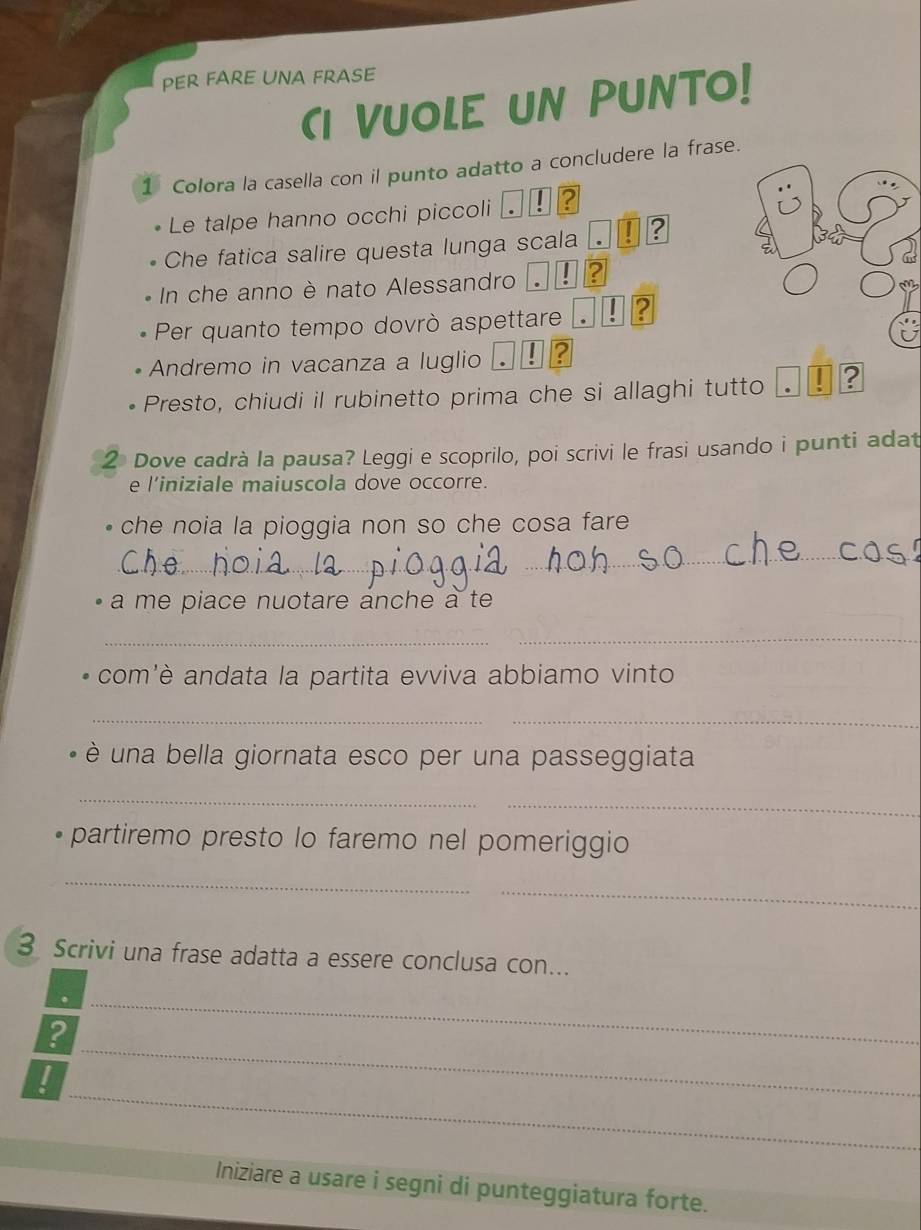 PER FARE UNA FRASE
CI VUOLE UN PUNTO!
1 Colora la casella con il punto adatto a concludere la frase.
• Le talpe hanno occhi piccoli . ! ?
• Che fatica salire questa lunga scala . ! ?
• In che anno è nato Alessandro . ! ?
• Per quanto tempo dovrò aspettare . ! ?
• Andremo in vacanza a luglio . ! ?
• Presto, chiudi il rubinetto prima che si allaghi tutto . ! ?
2 Dove cadrà la pausa? Leggi e scoprilo, poi scrivi le frasi usando i punti adat
e l'iniziale maiuscola dove occorre.
• che noia la pioggia non so che cosa fare
Che noia la pioggia non so che cosa
• a me piace nuotare anche a te
• com'è andata la partita evviva abbiamo vinto
• è una bella giornata esco per una passeggiata
• partiremo presto lo faremo nel pomeriggio
3 Scrivi una frase adatta a essere conclusa con...
.
?
!
Iniziare a usare i segni di punteggiatura forte.